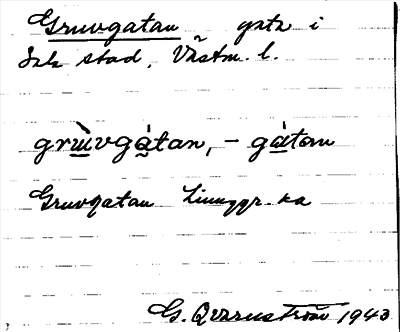 Gruvgatan gata i
Sala stad, Västm. l.
grùvgàtan, – gàton
Gruvgatan Linnggr. ka
G. Qvarnström 1943